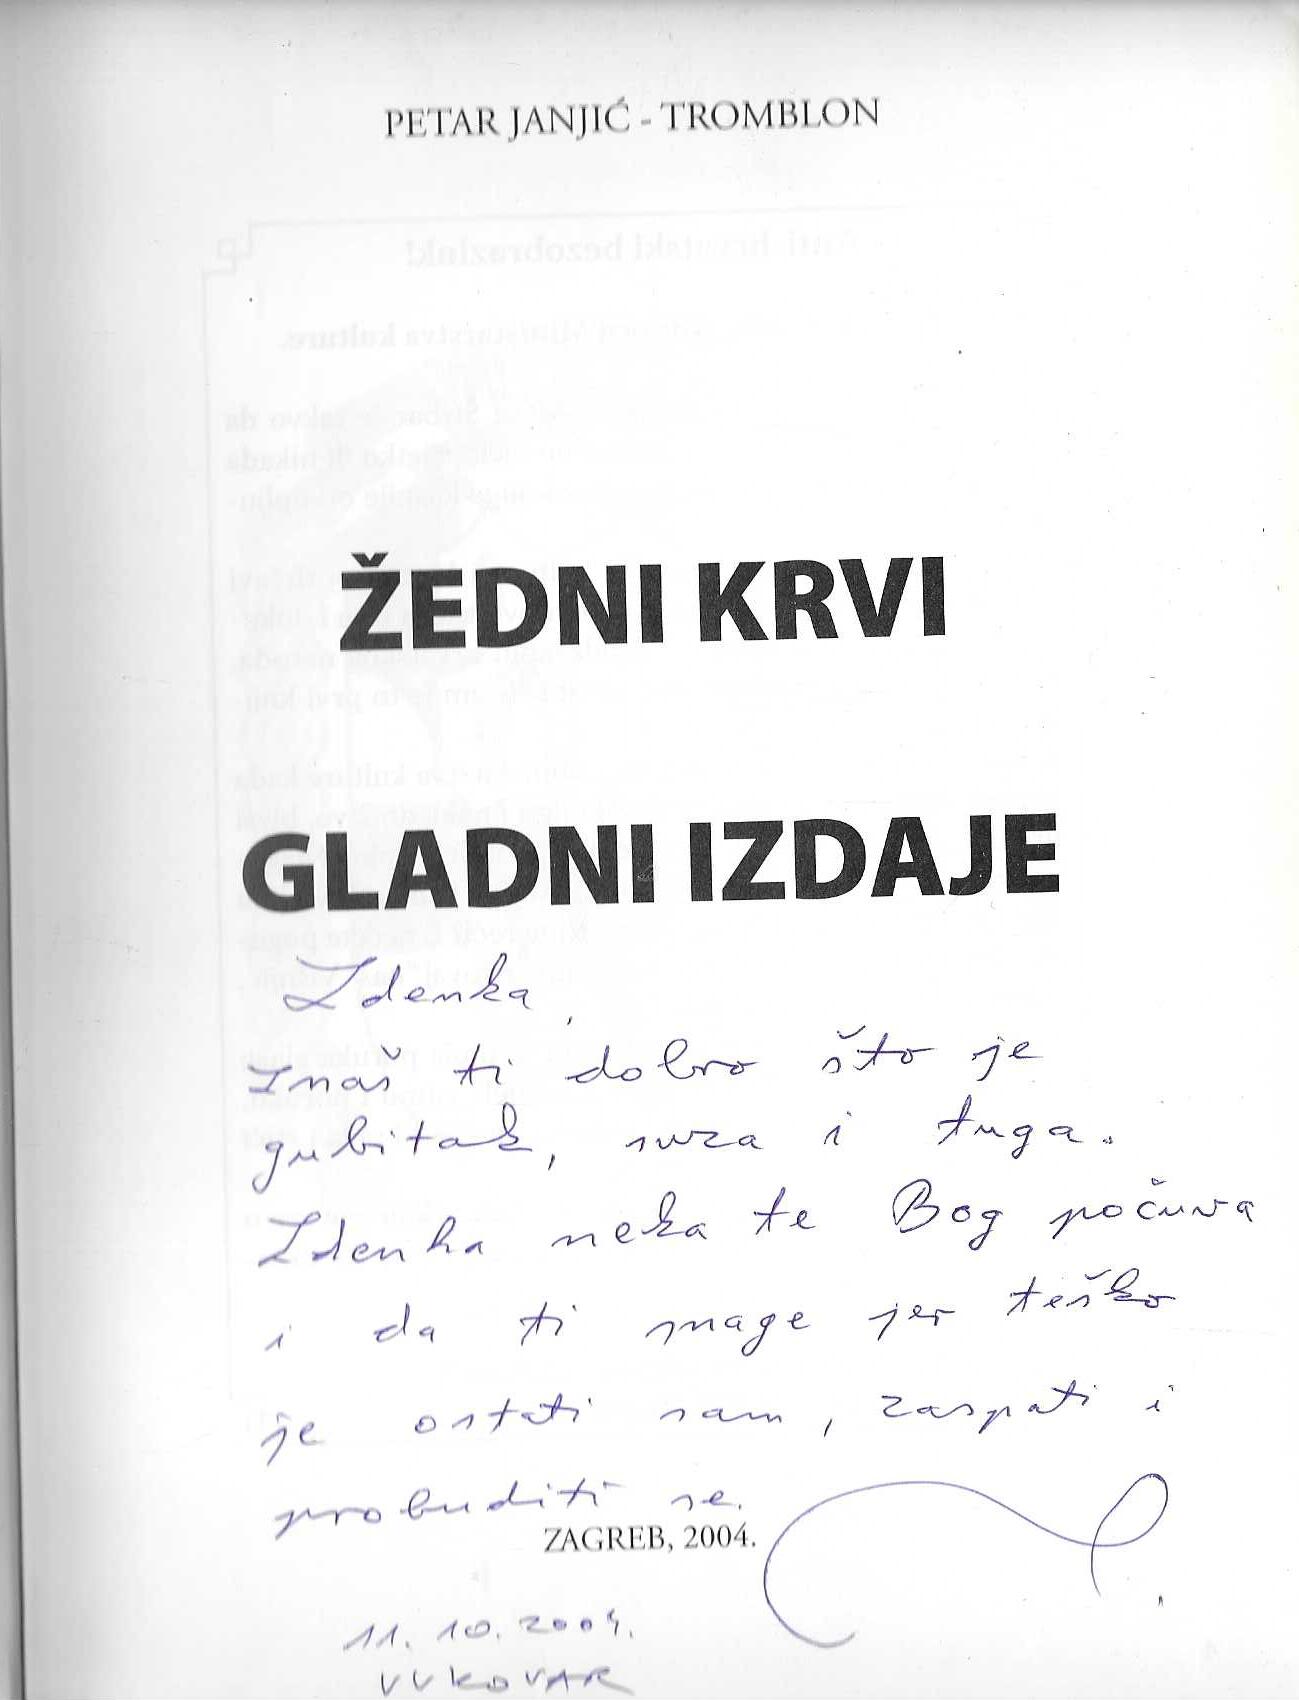 PETAR JANJIĆ - TROMBLON
ŽEDNI KRVI
GLADNI IZDAJE
Zdenka,
Znaš ti dobro što je
gubitak, suza i tuga.
Zdenka neka te Bog počuva
i da ti snage jer teško
je ostati sam, zaspati i
probuditi se.
ZAGREB, 2004.
11. 10. 2004.
VUKOVAR